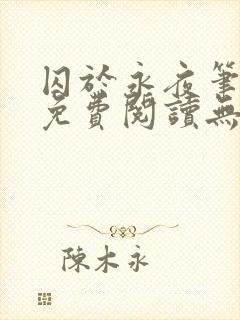 囚於永夜筆
免費閱讀無
陳木永